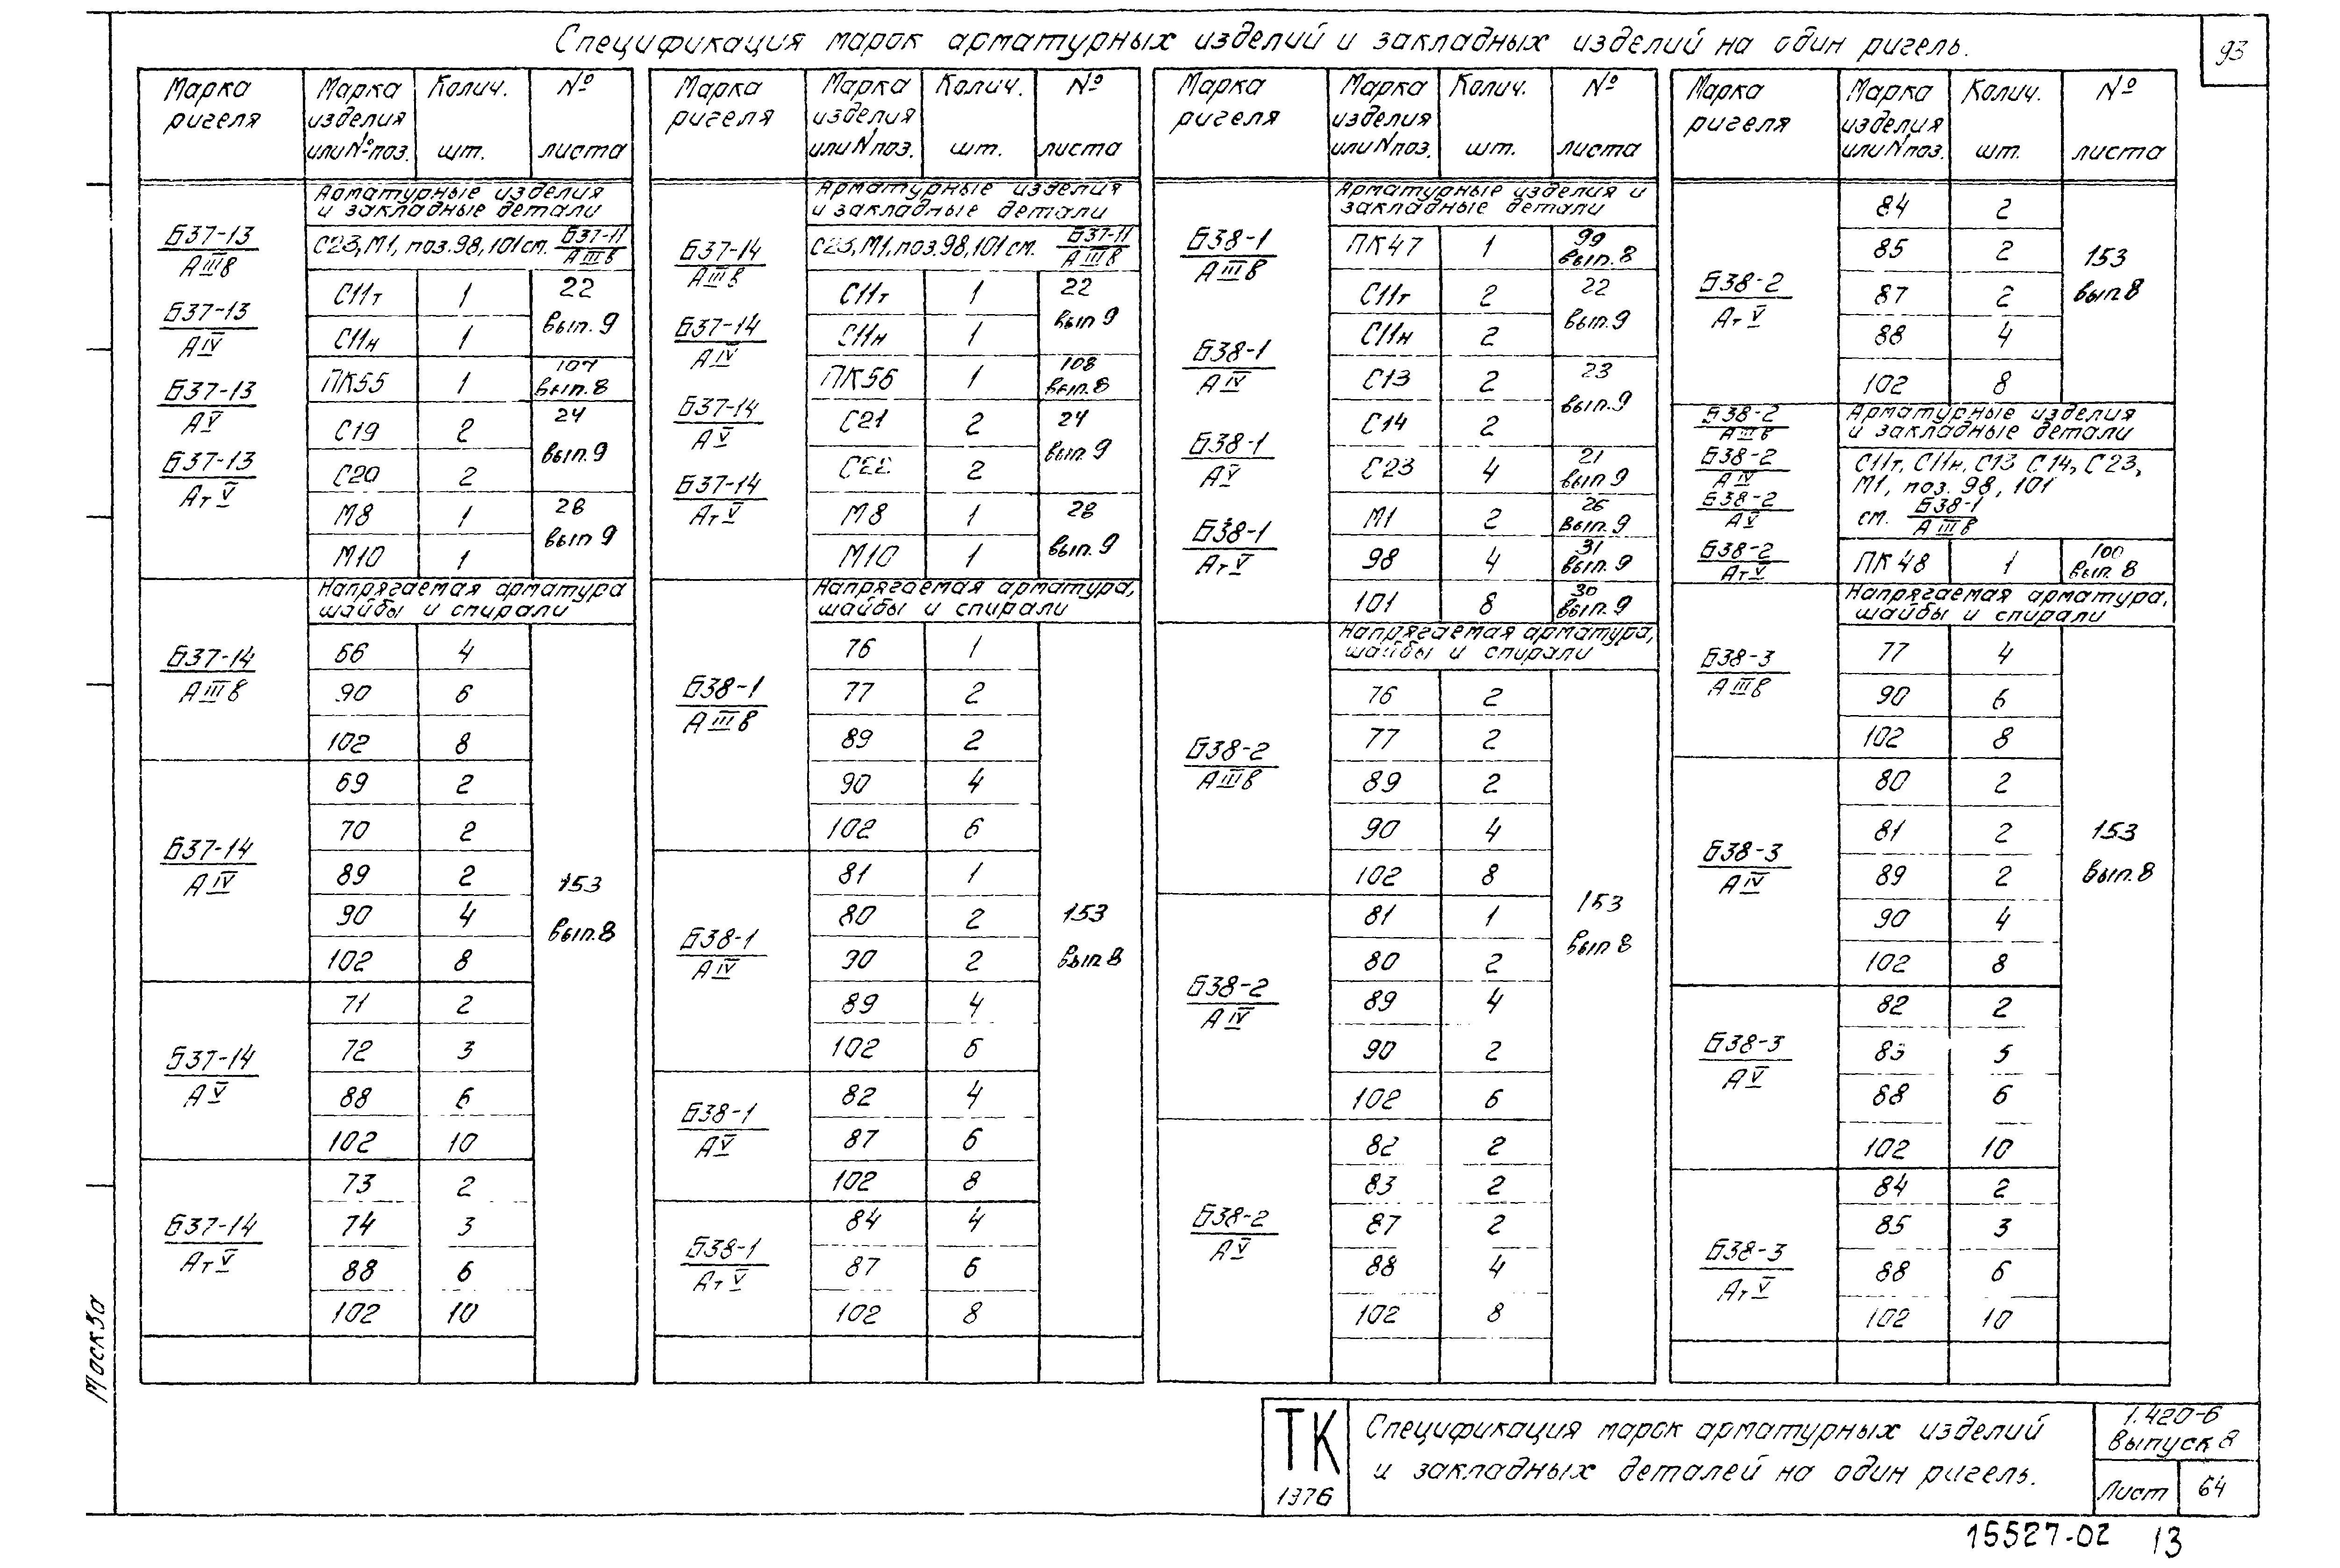 93
Спецификация марок арматурных изделий и закладных изделий на один ригель.
Марка ригеля | Марка изделия или № поз. | Колич. шт. | № листа
Б37-13/АIIIв
Б37-13/АIV
Б37-13/АV
Б37-13/АтV
Арматурные изделия
и закладные детали
С23, М1, поз. 98, 101 см. Б37-11/АIIIв
С11т 1 22 вып. 9
С11н 1
ПК55 1 107 вып. 8
С19 2 24 вып. 9
С20 2
М8 1 28 вып 9
М10 1
Напрягаемая арматура
шайбы и спирали
153 вып. 8
Б37-14/АIIIв
66 4
90 6
102 8
Б37-14/АIV
69 2
70 2
89 2
90 4
102 8
Б37-14/АV
71 2
72 3
88 6
102 10
Б37-14/АтV
73 2
74 3
88 6
102 10
Марка ригеля | Марка изделия или N поз. | Колич. шт. | № листа
Б37-14/АIIIв
Б37-14/АIV
Б37-14/АV
Б37-14/АтV
Арматурные изделия
и закладные детали
С23, М1, поз. 98, 101 см. Б37-11/АIIIв
С11т 1 22 вып 9
С11н 1
ПК56 1 108 вып. 8
С21 2 24 вып. 9
С22 2
М8 1 28 вып. 9
М10 1
Напрягаемая арматура,
шайбы и спирали
153 вып 8
Б38-1/АIIIв
76 1
77 2
89 2
90 4
102 6
Б38-1/АIV
81 1
80 2
90 2
89 4
102 6
Б38-1/АV
82 4
87 6
102 8
Б38-1/АтV
84 4
87 6
102 8
Марка ригеля | Марка изделия или N поз. | Колич. шт. | № листа
Б38-1/АIIIв
Б38-1/АIV
Б38-1/АV
Б38-1/АтV
Арматурные изделия и
закладные детали
ПК47 1 99 вып. 8
С11т 2 22 вып. 9
С11н 2
С13 2 23 вып. 9
С14 2
С23 4 21 вып. 9
М1 2 26 вып. 9
98 4 31 вып. 9
101 8 30 вып. 9
Напрягаемая арматура,
шайбы и спирали
153 вып 8
Б38-2/АIIIв
76 2
77 2
89 2
90 4
102 8
Б38-2/АIV
81 1
80 2
89 4
90 2
102 6
Б38-2/АV
82 2
83 2
87 2
88 4
102 8
Марка ригеля | Марка изделия или N поз. | Колич. шт. | № листа
Б38-2/АтV
84 2 153 вып 8
85 2
87 2
88 4
102 8
Б38-2/АIIIв
Б38-2/АIV
Б38-2/АV
Б38-2/АтV
Арматурные изделия
и закладные детали
С11т, С11н, С13 С14, С23,
М1, поз. 98, 101
см. Б38-1/АIIIв
ПК48 1 100 вып. 8
Напрягаемая арматура,
шайбы и спирали
153 вып. 8
Б38-3/АIIIв
77 4
90 6
102 8
Б38-3/АIV
80 2
81 2
89 2
90 4
102 8
Б38-3/АV
82 2
83
88 6
102 10
Б38-3/АтV
84 2
85 3
88 6
102 10
ТК
1976
Спецификация марок арматурных изделий
и закладных деталей на один ригель.
1.420-6
Выпуск 8
Лист 64
15527-02 13